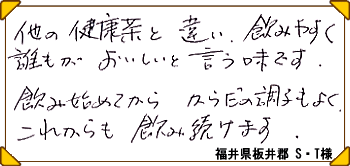 他の健康茶と違い、飲みやすく
誰もが おいしいと言う味です.
飲み始めてから からだの調子もよく、
これからも飲み続けます.
福井県板井郡 S・T様